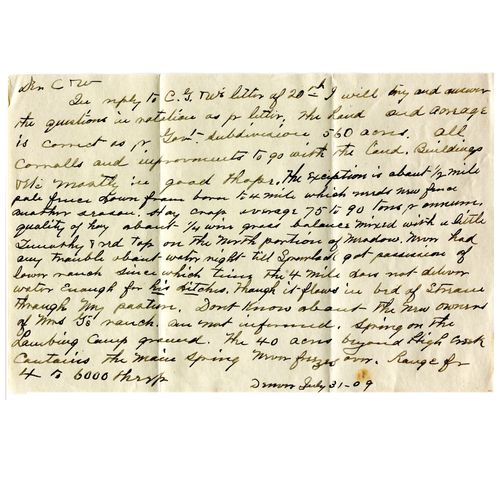 Dear C & W
In reply to C.G. & W's letter of 20th I will try and answer
the questions in rotation as pr letter, the land and acreage
is correct as pr. Govt. subdivision 560 acres. All
Corralls and improvements to go with the land. Buildings
mostly in good shape. The exception is about 1/2 mile
pole fence down from barn to 4 mile which needs new fence
another season. Hay crop average 75 to 90 tons pr annum.
quality of hay about wire grass balance mixed with a little
Timothy & red top on the North portion of Meadow. Never had
any trouble about water right till got possession of
lower ranch since which time the 4 mile does not deliver
water enough for his ditches. Though it flows in bed of Stream
through my pasture. Dont know about the new owners
of Mrs ranch. am not informed. Spring on the
Lambing Camp ground. The 40 acres beyond High Creek
Contains the Main Spring Never freezes over. Range for
4 to 6000 sheep
Denver July 31-09